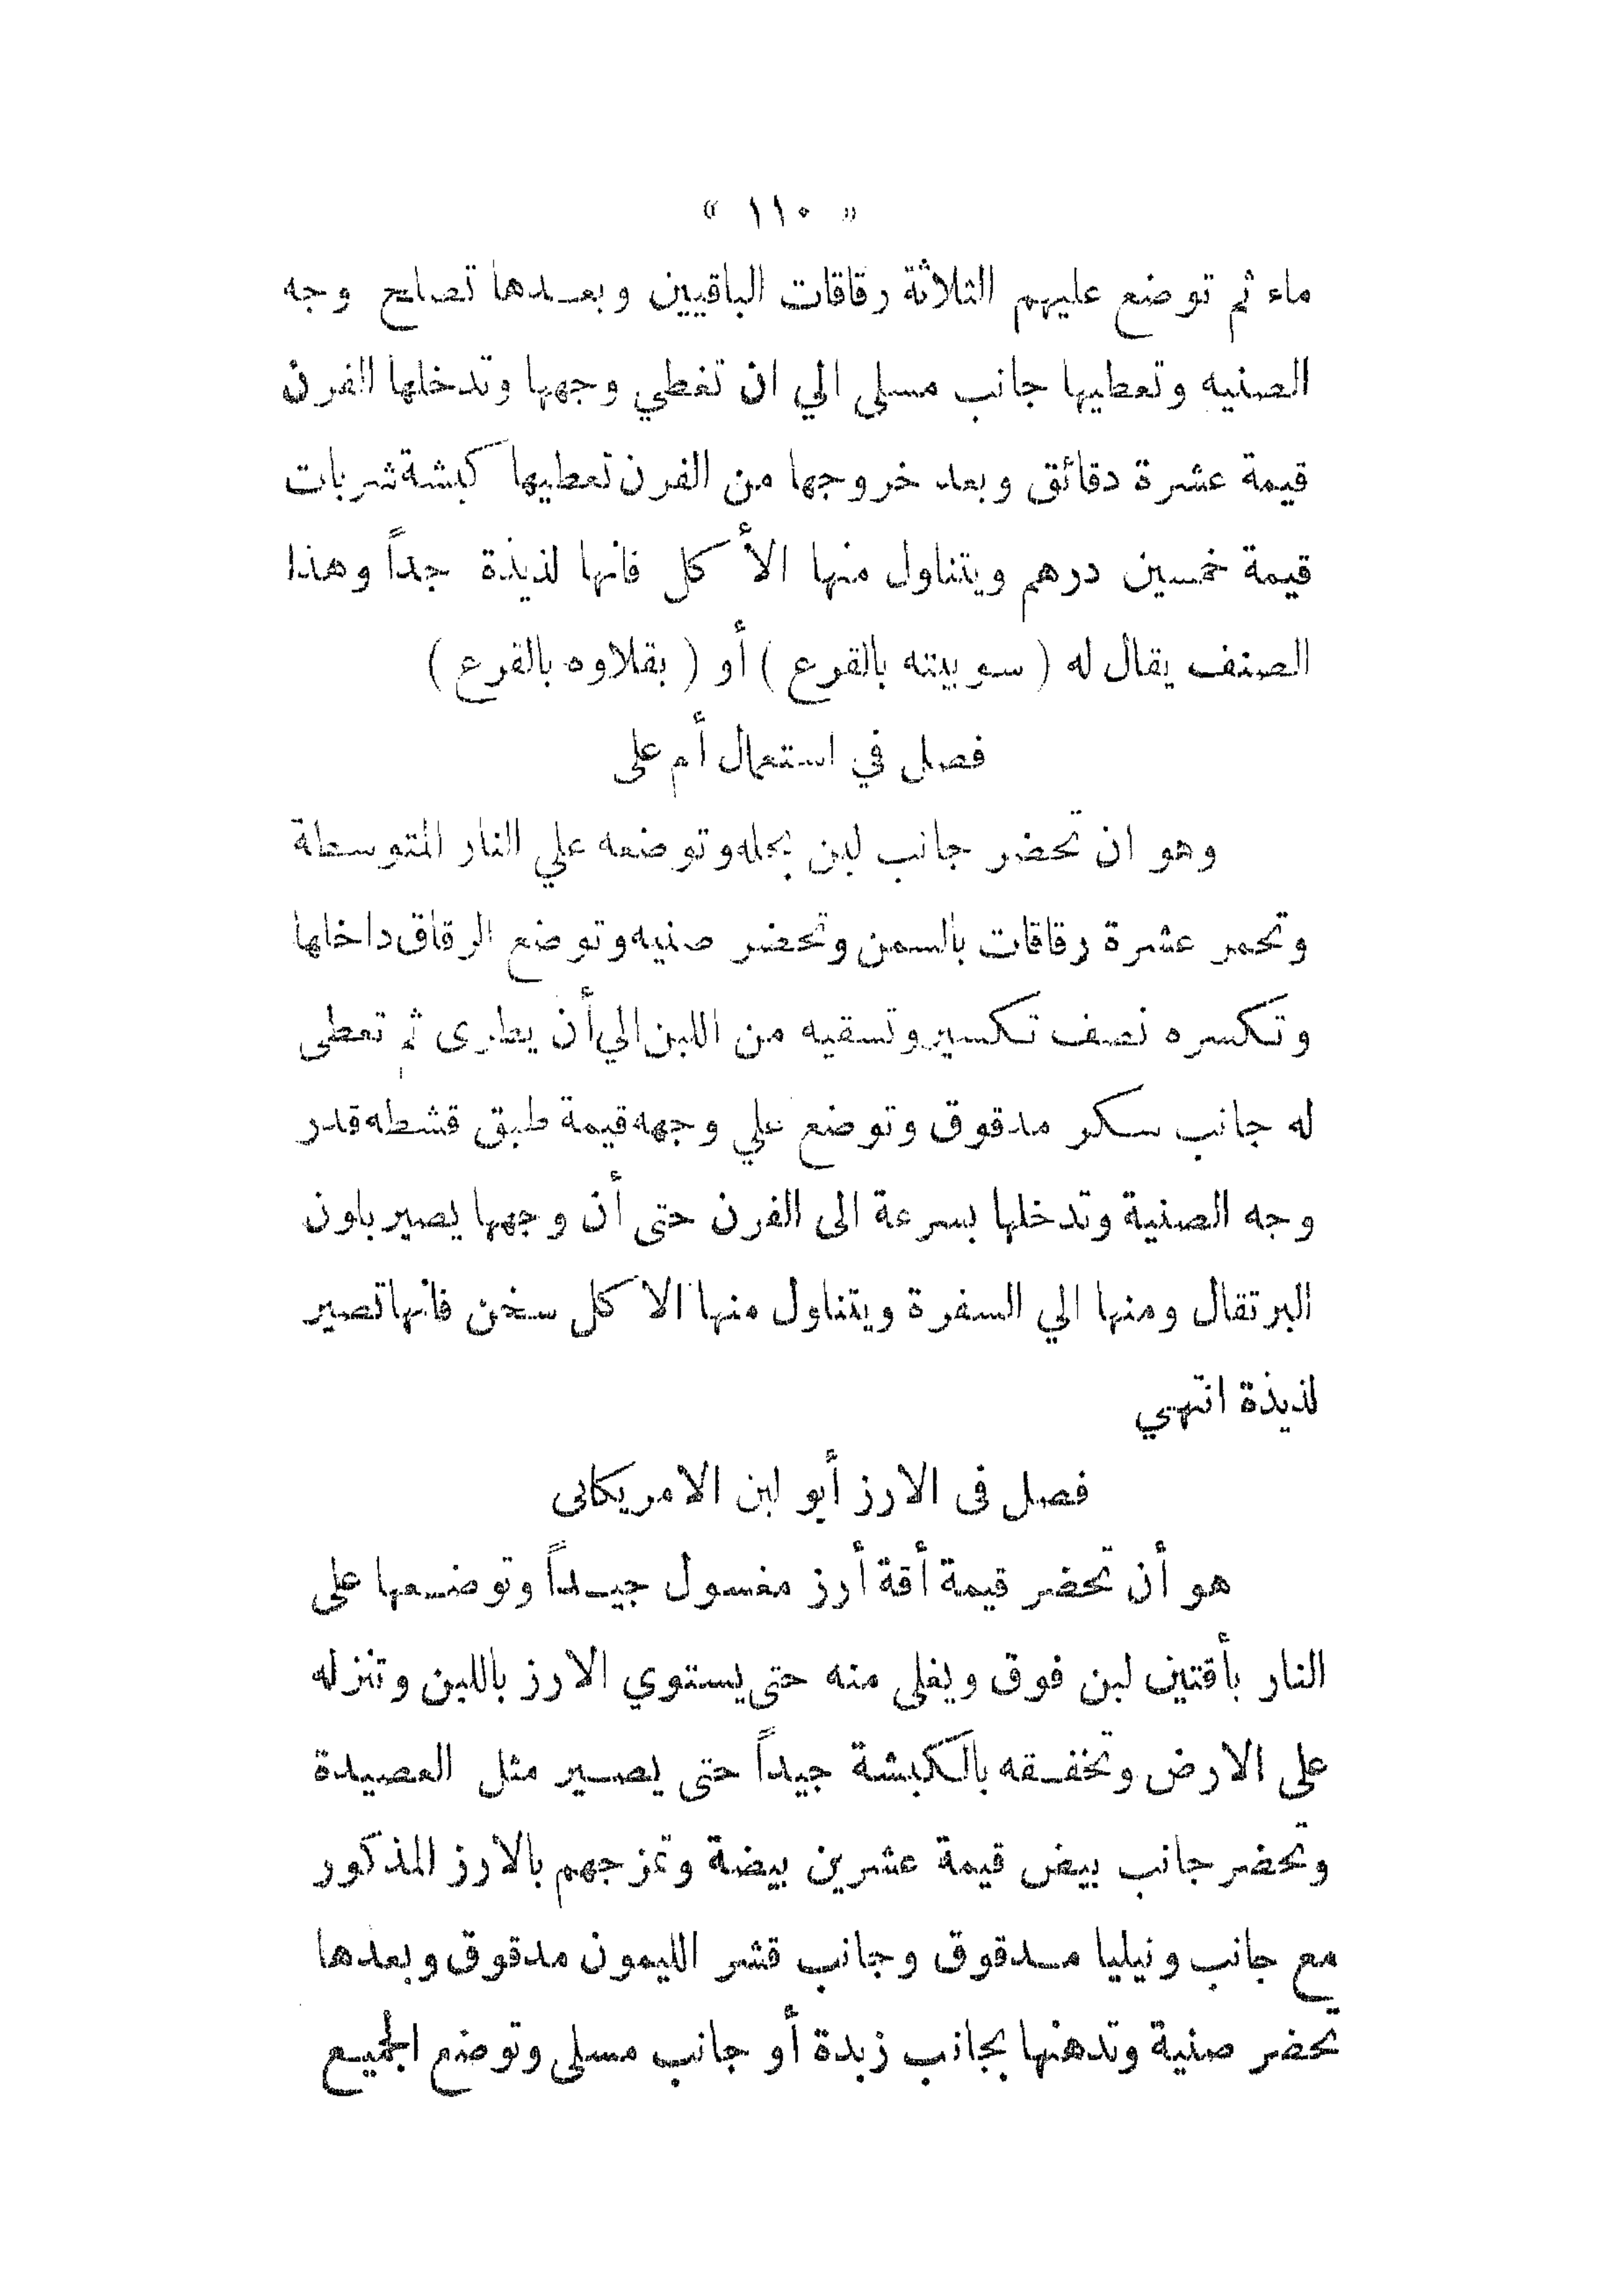 « ١١٠ »
ماء ثم توضع عليهم الثلاثة رقاقات الباقيين وبعدها تصلح وجه
الصنيه وتعطيها جانب مسلى الي ان تغطي وجهها وتدخلها الفرن
قيمة عشرة دقائق وبعد خروجها من الفرن تعطيها كبشة شربات
قيمة خمسين درهم ويتناول منها الأكل فانها لذيذة جداً وهذا
الصنف يقال له ( سوبيته بالقرع ) أو ( بقلاوه بالقرع )
فصل في استعمال أم على
وهو ان تحضر جانب لبن بجله وتوضعه علي النار المتوسطة
وتحمر عشرة رقاقات بالسمن وتحضر صنيه وتوضع الرقاق داخلها
وتكسره نصف تكسير وتسقيه من اللبن الي أن يطرى ثم تعطى
له جانب سكر مدقوق وتوضع علي وجهه قيمة طبق قشطه قدر
وجه الصنية وتدخلها بسرعة الى الفرن حتى أن وجهها يصير بلون
البرتقال ومنها الي السفرة ويتناول منها الاكل سخن فانها تصير
لذيذة انتهي
فصل فى الارز أبو لبن الامريكانى
هو أن تحضر قيمة أقة أرز مغسول جيداً وتوضعها على
النار بأقتين لبن فوق ويغلى منه حتى يستوي الارز باللبن وتنزله
على الارض وتخفقه بالكبشة جيداً حتى يصير مثل العصيدة
وتحضر جانب بيض قيمة عشرين بيضة وتمزجهم بالارز المذكور
مع جانب ونيليا مدقوق وجانب قشر الليمون مدقوق وبعدها
تحضر صنية وتدهنها بجانب زبدة أو جانب مسلى وتوضع الجميع